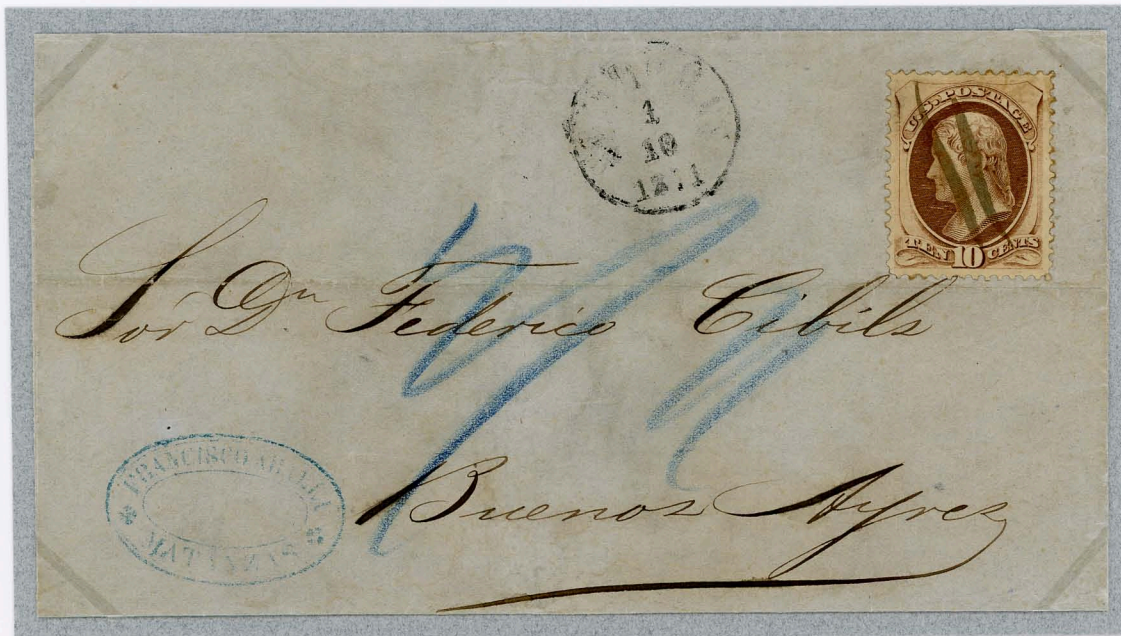 1
10
1871
U.S. POSTAGE
TEN 10 CENTS
Sor Dn. Federico Cibils
Buenos Ayres
FRANCISCO
MATANZAS